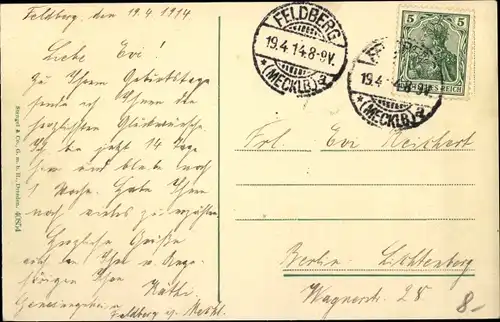 Feldberg, den 19.4.1914
Liebe Evi!
Zu Ihrem Geburtstage
sende ich Ihnen die
herzlichsten Glückwünsche
Ich bin jetzt 14 Tage
hier und bleibe noch
1 Woche. Habe Ihnen
noch vieles zu erzählen.
Herzliche Grüße
an die
hörigen Ihre
Käthi
Feldberg i. Meckl.
Stengel & Co., G. m. b. H., Dresden. 40854
FELDBERG
19.4.14.8-9V.
*(MECKLB)a
5 5
DEUTSCHES REICH
19.4
8-9V.
*(MECKLB)a
Frl. Evi
Berlin Lichtenberg
Wagnerstr. 28
8-